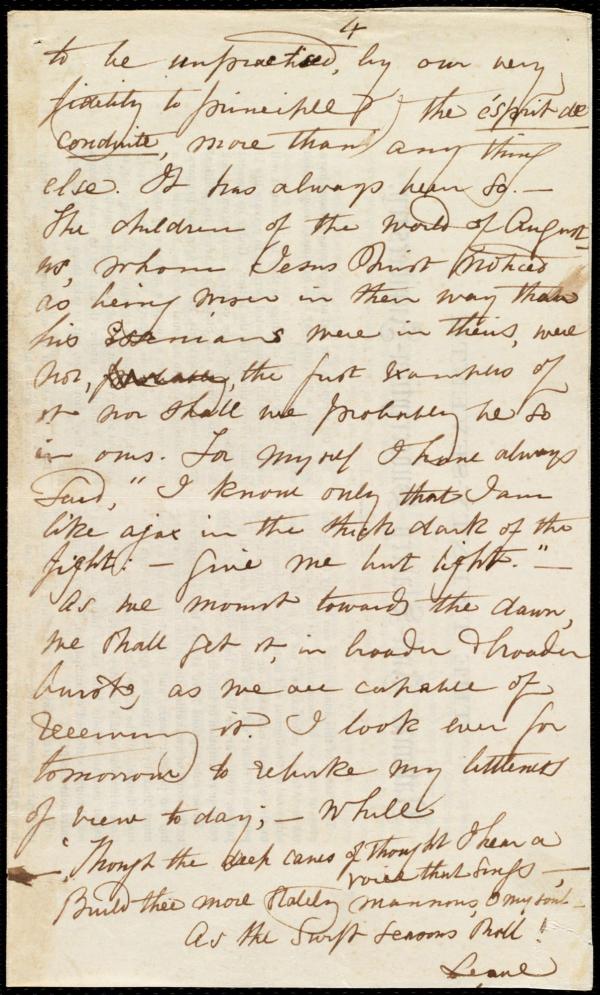 4
to be unpractised, by our very
fidelity to principle) the ésprit de
conduite, more than any thing
else. It has always been so. —
The children of the world of August-
us, whom Jesus Christ noticed
as being wiser in their way than
his Essenians were in theirs, were
not, the first examples of
it nor shall we probably be so
in ours. For myself I have always
said, "I know only that I am
like ajax in the thick dark of the
fight: — give me but light." —
As we mount towards the dawn,
we shall get it, in broader & broader
bursts, as we are capable of
receiving it. I look ever for
tomorrow to rebuke my littleness
of view to day; — While
— "Though the deep caves of thought I hear a
voice that sings, —
Build thee more stately mansions, O my soul —
As the swift seasons roll!
Leave